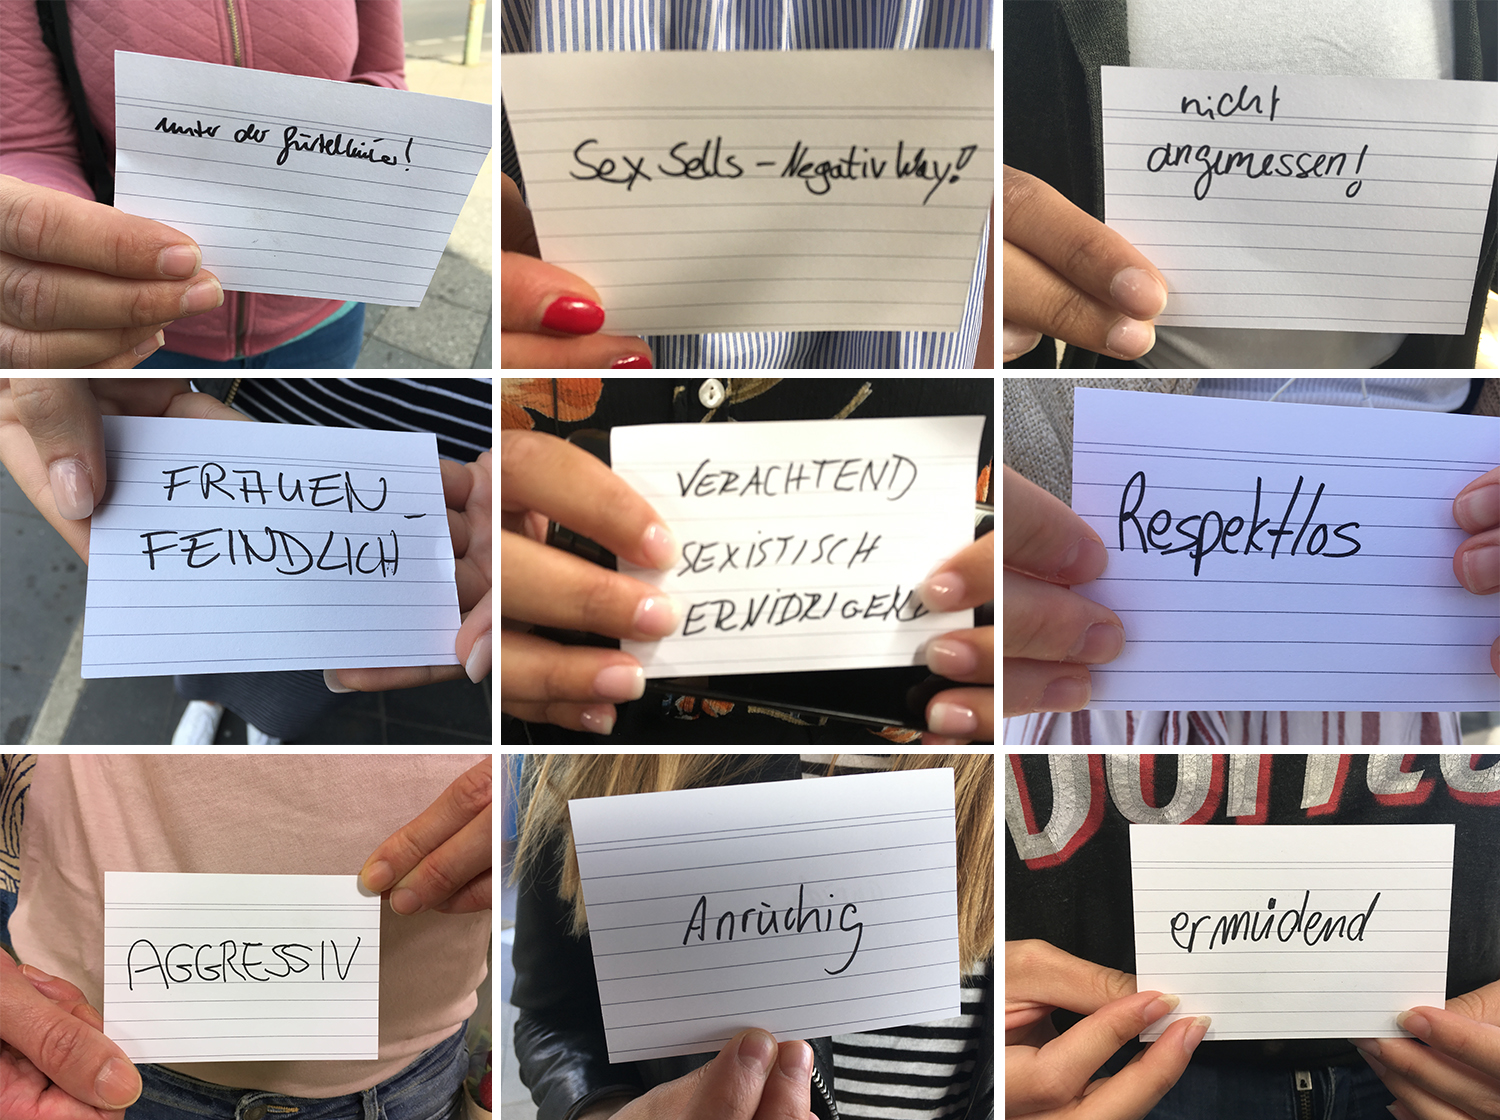 unter der Gürtellinie!
Sex Sells - Negativ Way!
nicht
angemessen!
FRAUEN-
FEINDLICH
VERACHTEND
SEXISTISCH
ERNIDRIGEND
Respektlos
AGGRESSIV
Anrüchig
ermüdend